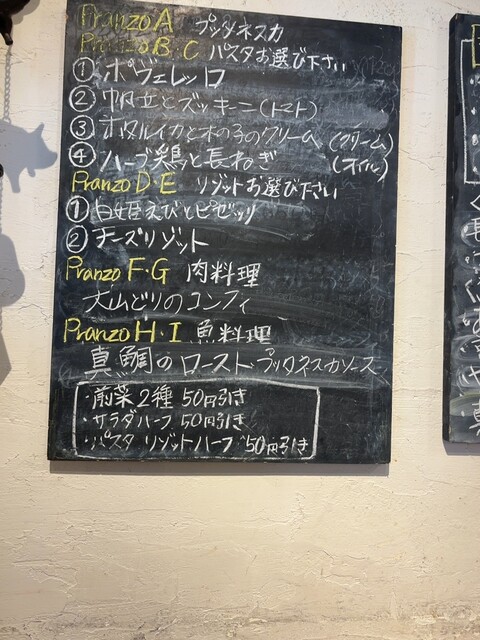 Pranzo A プッタネスカ
Pranzo B・C パスタお選び下さい
① ポヴェレット
② 帆立とズッキーニ(トマト)
③ ホタルイカと木の子のクリーム (クリーム)
④ ハーブ鶏と長ねぎ (オイル)
Pranzo D・E リゾットお選び下さい
① 白姫えびとピゼッリ
② チーズリゾット
Pranzo F・G 肉料理
大山どりのコンフィ
Pranzo H・I 魚料理
真鯛のロースト プッタネスカソース
・前菜2種 50円引き
・サラダハーフ 50円引き
・パスタ リゾットハーフ 50円引き